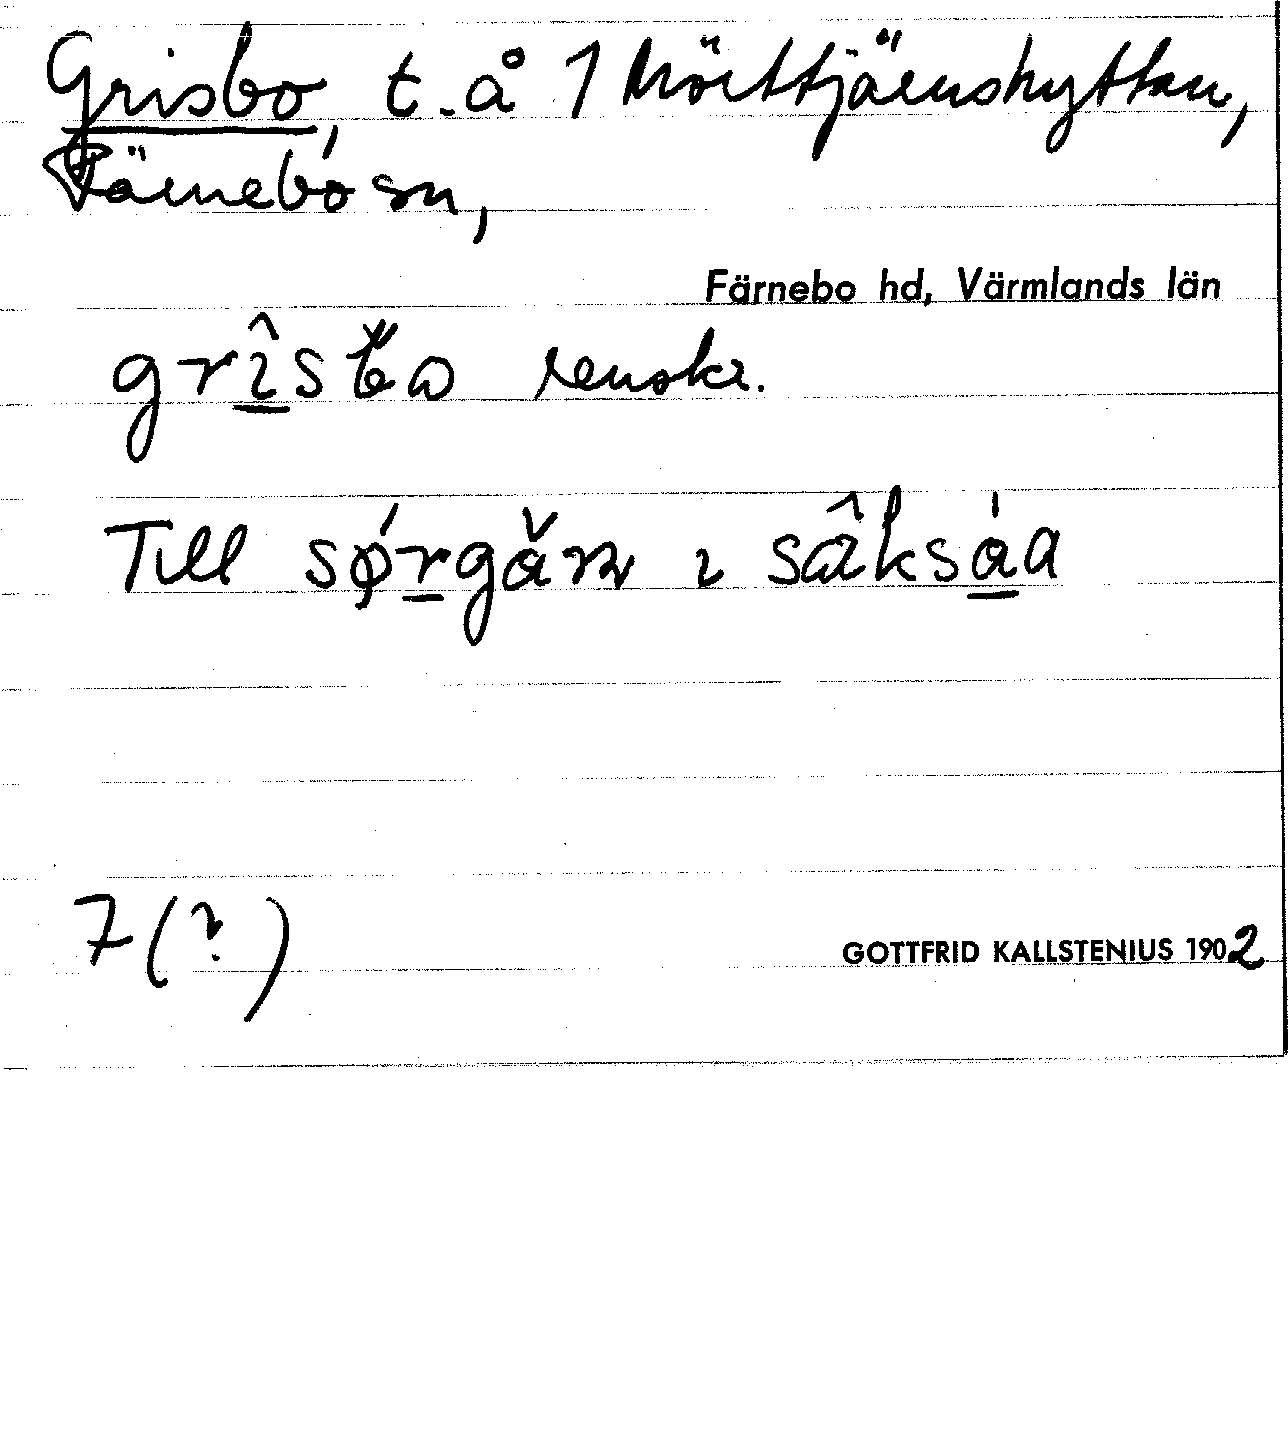 Grisbo, t. å 1 Mörttjärnshyttan,
Färnebo sn,
Färnebo hd, Värmlands län
renskr.
Till i
7(?)
GOTTFRID KALLSTENIUS 1902